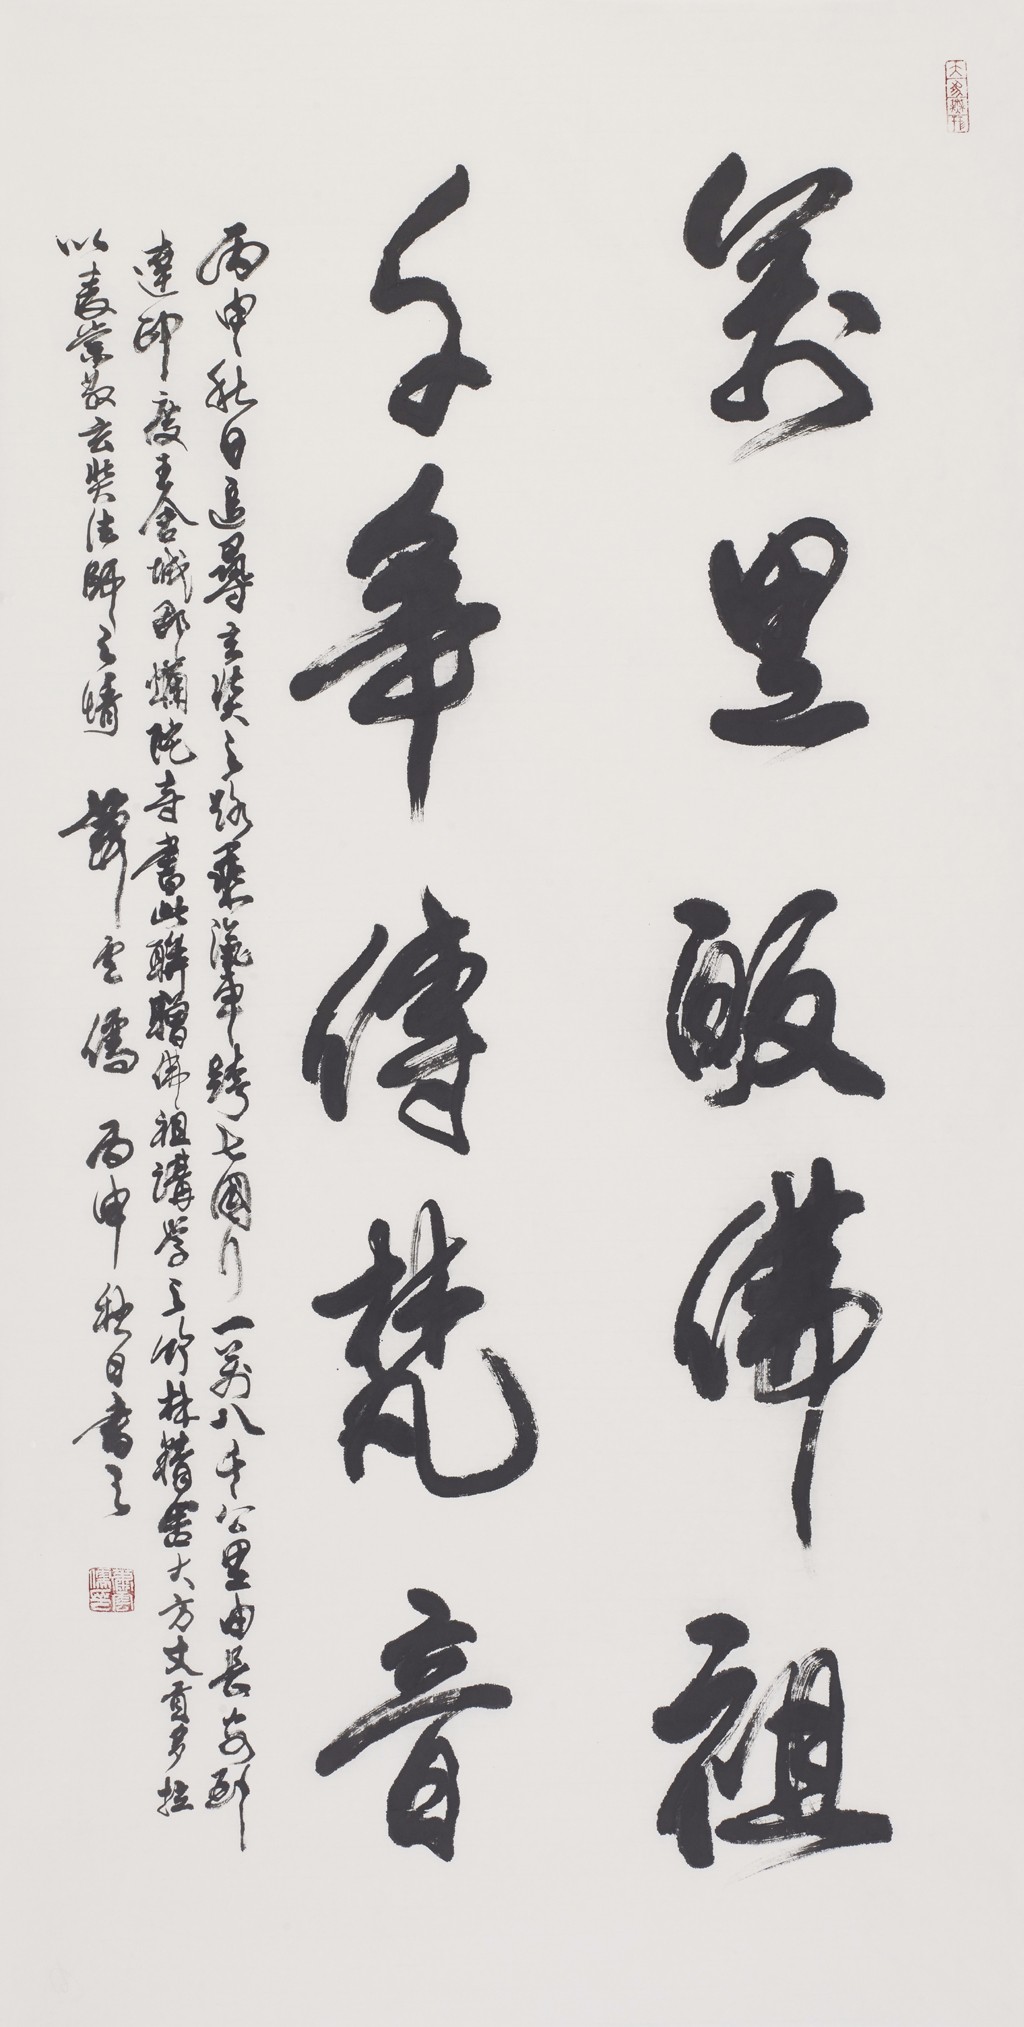 大象無形
萬里皈佛祖
千年傳梵音
丙申秋日追尋玄奘之路乘汽車跨七國行一萬八千公里由長安到
達印度王舍城那爛陀寺書此聯贈佛祖講學之竹林精舍大方丈貢多拉
以表崇敬玄奘法師之情 蕭雲儒 丙申秋日書之
蕭雲儒印